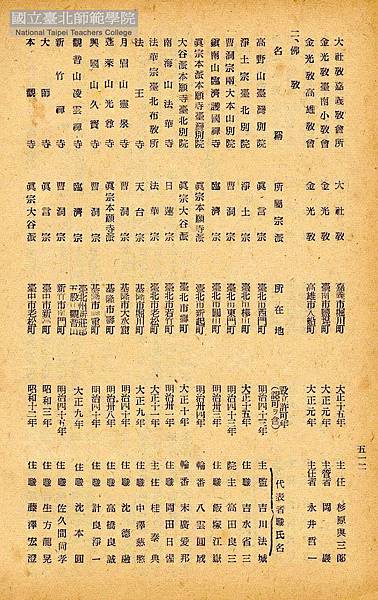 國立臺北師範學院
National Taipei Teachers College
大社敎嘉義敎會所 大社敎 嘉義市堀川町 大正十五年 主任 杉原與三郎
金光敎臺南小敎會 金光敎 臺南市 大正元年 主管者 岡巖
金光敎高雄敎會 金光敎 高雄市入船町 大正元年 主任者 永井哲一
二、佛敎
名稱 所屬宗派 所在地 設立許可年(認可ヲ含) 代表者職氏名
高野山臺灣別院 眞言宗 臺北市西門町 明治四十三年 主監 吉川法城
淨土宗臺北別院 淨土宗 臺北市樺山町 大正十五年 住職 吉水省三
曹洞宗兩大本山別院 曹洞宗 臺北市東門町 明治四十 年 院主 高田良三
鎭南山臨濟護國禪寺 臨濟宗 臺北市圓山町 明治四十 年 住職 飯塚江嶽
眞宗本願寺臺灣別院 眞宗本願寺派 臺北市新起町 明治卅四年 輪番 八雲圓成
大谷派本願寺臺北別院 眞宗大谷派 臺北市壽町 大正十年 輪番 廣愛邦
南海山法華寺 日蓮宗 臺北市若竹町 明治卅三年 住職 岡田日濯
法華宗臺北布敎所 法華宗 臺北市老松町 大正十一年 主任 桂泰典
法王寺 天台宗 基隆市堀川町 大正九年 住職 中澤慈愍
月眉山靈泉寺 曹洞宗 基隆市大水窟 明治四十 年 住職 沈德融
蓬萊山光尊寺 眞宗本願寺派 基隆市壽町 明治卅八年 住職 高橋良誠
興國山久寶寺 曹洞宗 基隆市義重町 明治四十 年 住職 計良淨一
觀音山凌雲禪寺 臨濟宗 臺北州新莊郡五股庄觀音坑 大正九年 住職 沈本圓
新竹寺 曹洞宗 新竹市南門町 明治四十五年 住職 佐久間尙孝
大師寺 眞言宗 臺中市新富町 昭和三年 住職 生方龍晃
本願寺 眞宗大谷派 臺中市老松町 昭和十二年 住職 藤澤宏澄